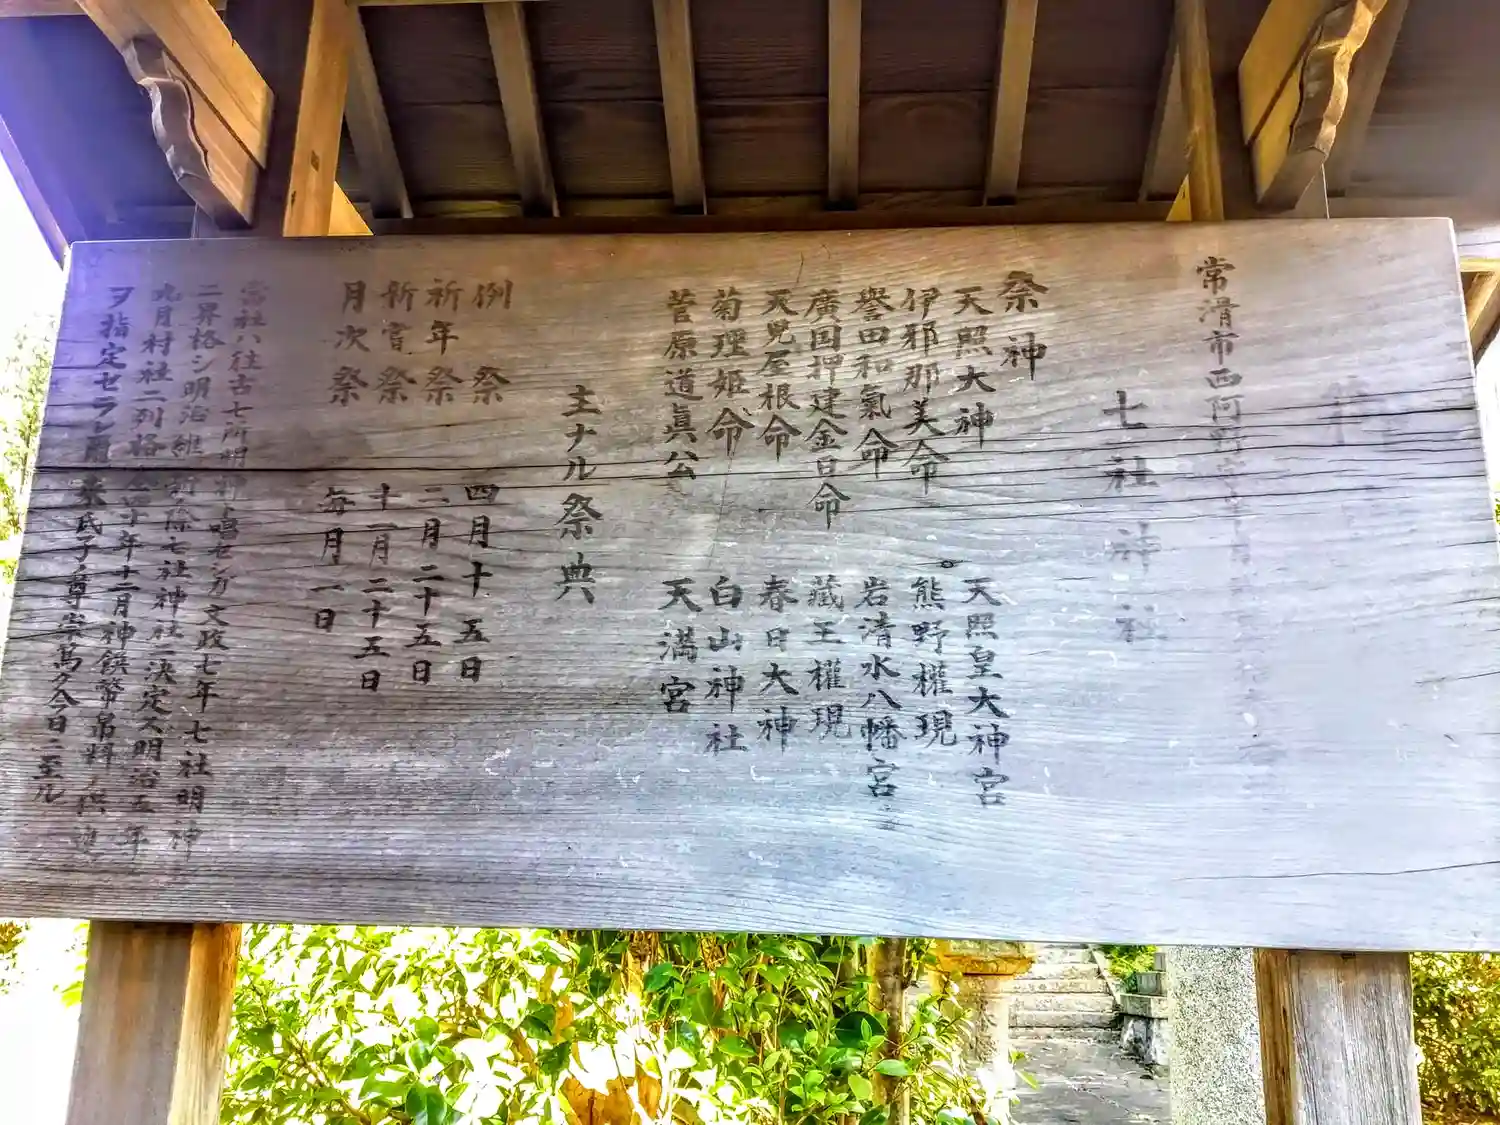 常滑市西阿野
七社神社
祭神
天照大神 天照皇大神宮
伊邪那美命 熊野權現
譽田和氣命 岩清水八幡宮
廣国押建金日命 藏王權現
天児屋根命 春日大神
菊理姫命 白山神社
菅原道眞公 天満宮
主ナル祭典
例祭 四月十五日
祈年祭 二月二十五日
新嘗祭 十一月二十五日
月次祭 毎月一日
當社ハ往古七所明神ト唱セシガ文政七年七社明神
ニ昇格シ明治維新後七社神社ニ決定ス明治五年
九月村社ニ列格 年十二月神饌幣帛料ノ供進
ヲ指定セラレ爾来氏子ノ尊崇萬ク今日ニ至ル